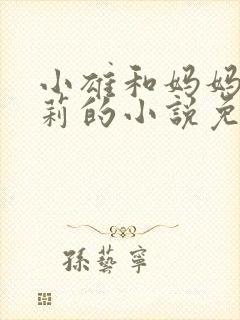 小雄和妈妈
莉的小説免
孫藝寧